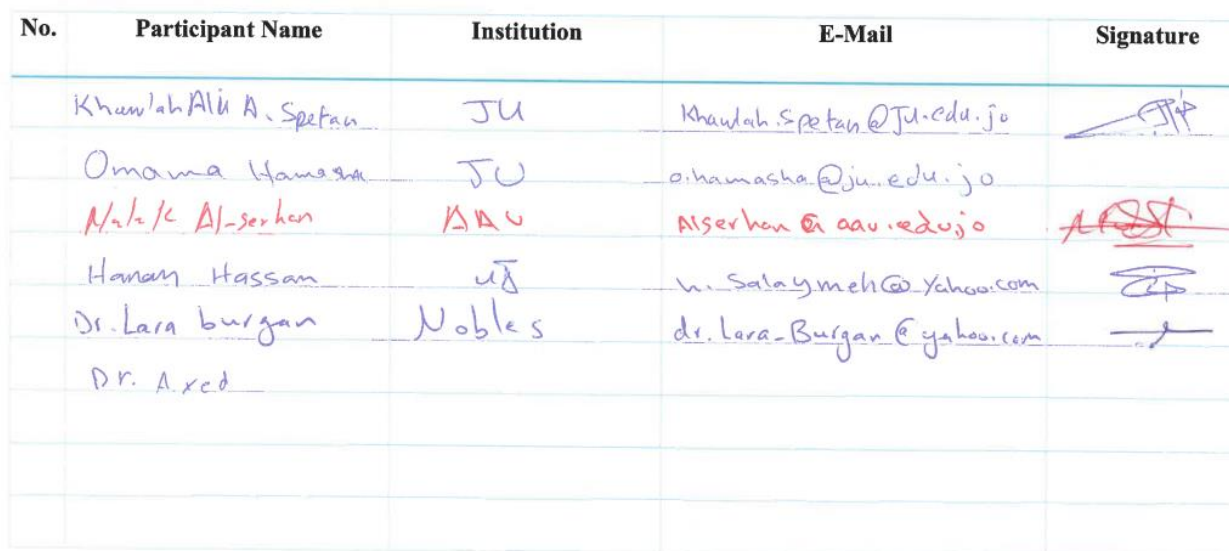 No. Participant Name Institution E-Mail Signature
Khawlah Ali A. Spetan JU Khawlah.Spetan@JU.edu.jo
Omama Hamasha JU o.hamasha@ju.edu.jo
Malak Al-serhan AAU Alserhan@aau.edu.jo
Hanan Hassan UJ h.Salaymeh@yahoo.com
Dr. Lara burgan Nobles dr.Lara-Burgan@yahoo.com
Dr.